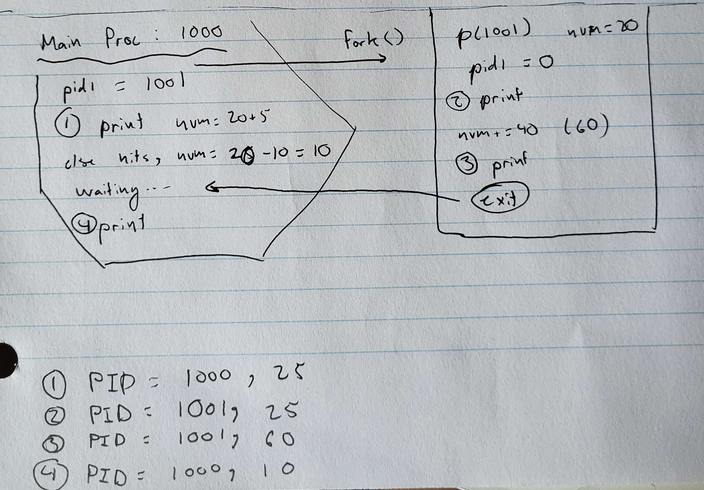 Main Proc : 1000
pid1 = 1001
① print num = 20+5
else hits, num = 20 - 10 = 10
waiting...
④ print
fork()
p(1001) num = 20
pid1 = 0
② print
num += 40 (60)
③ print
exit
① PID = 1000, 25
② PID = 1001, 25
③ PID = 1001, 60
④ PID = 1000, 10